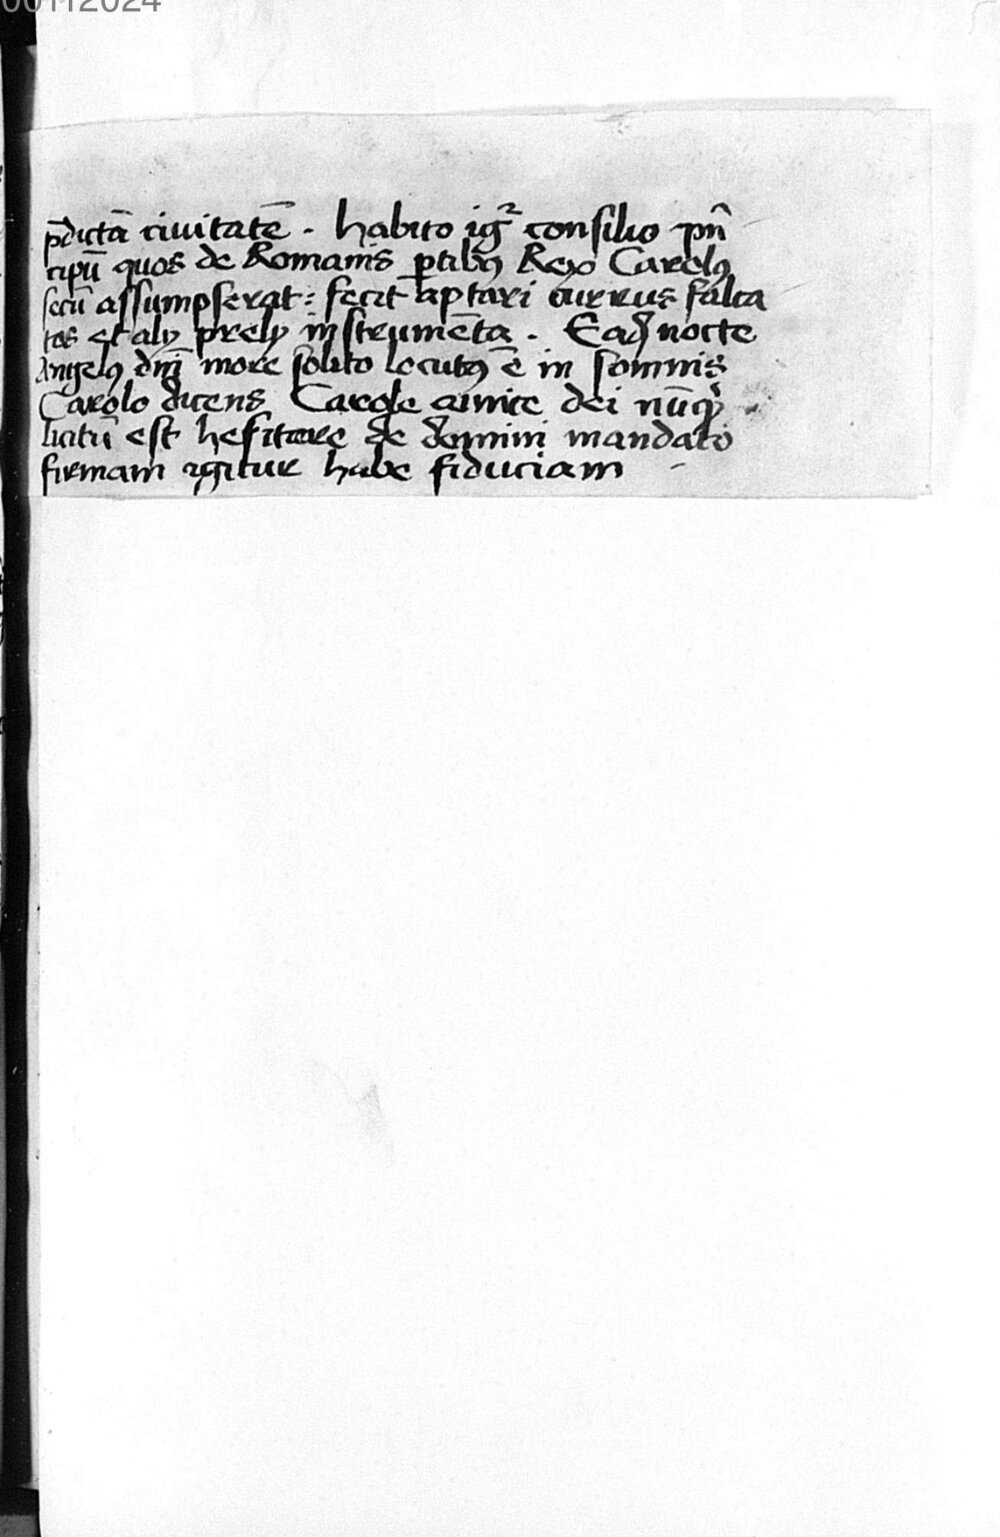 00112024
p̄dictā ciuitatē . habito igr̄ consilio prī
cipū quos de Romanis ꝑtibꝰ Rex Carolꝰ
secū assumpserat : fecit aptari currus falca
tos et alijs prelij instrumēta . Eadē nocte
Angelꝰ dnī more solito locutꝰ ē in somnis
Carolo dicens Carole amice dei nūqͥd
licitū est hesitare de domini mandato
firmam igitur habe fiduciam